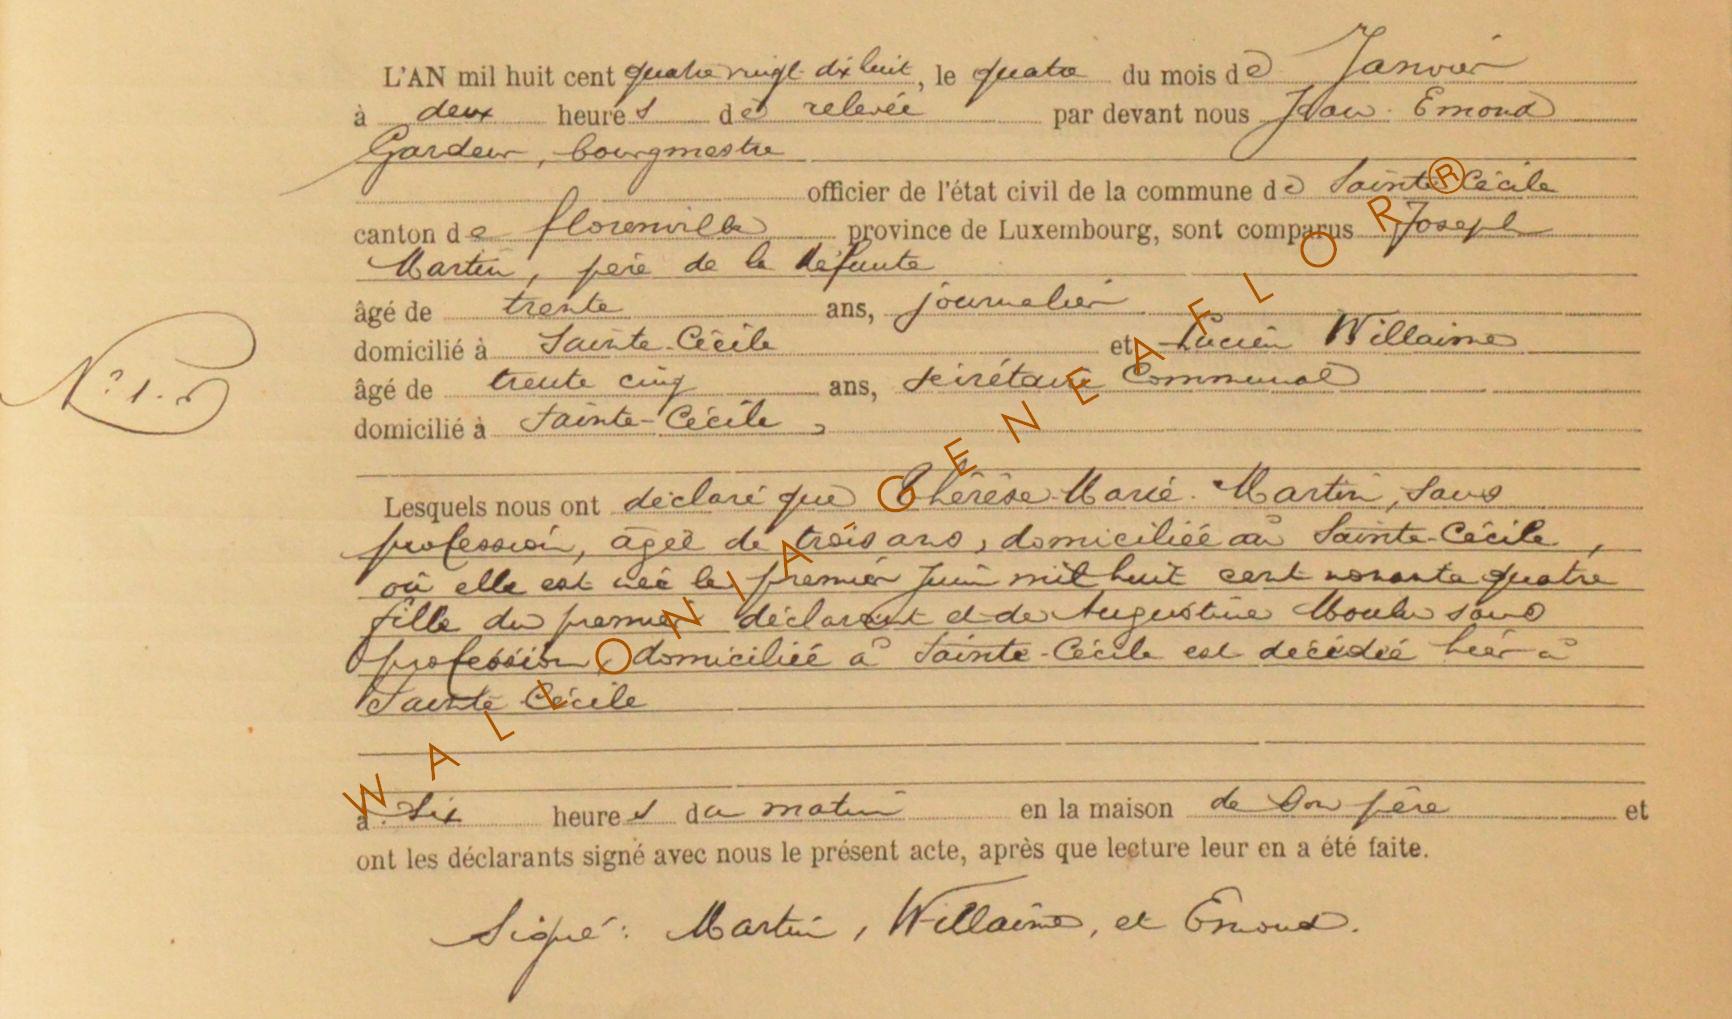 L'AN mil huit cent quatre vingt dix huit, le quatre du mois de Janvier
à deux heures de relevée par devant nous Jean Emond
Gardeur, bourgmestre
officier de l'état civil de la commune de Sainte Cécile
canton de florenville province de Luxembourg, sont comparus Joseph
Martin, père de la défunte
âgé de trente ans, journalier
domicilié à Sainte-Cécile et Lucien Willaime
N° 1.
âgé de trente cinq ans, secrétaire Communal
domicilié à Sainte-Cécile,
Lesquels nous ont déclaré que Thérèse-Marie Martin, sans
profession, âgée de trois ans, domiciliée à Sainte-Cécile,
où elle est née le premier Juin mil huit cent nonante quatre
fille du premier déclarant et de Augustine sans
profession, domiciliée à Sainte-Cécile est décédée hier à
Sainte Cécile
à six heures du matin en la maison de son père et
ont les déclarants signé avec nous le présent acte, après que lecture leur en a été faite.
Signé: Martin, Willaime, et Emond.
WALLONIA GENEAFLOR®